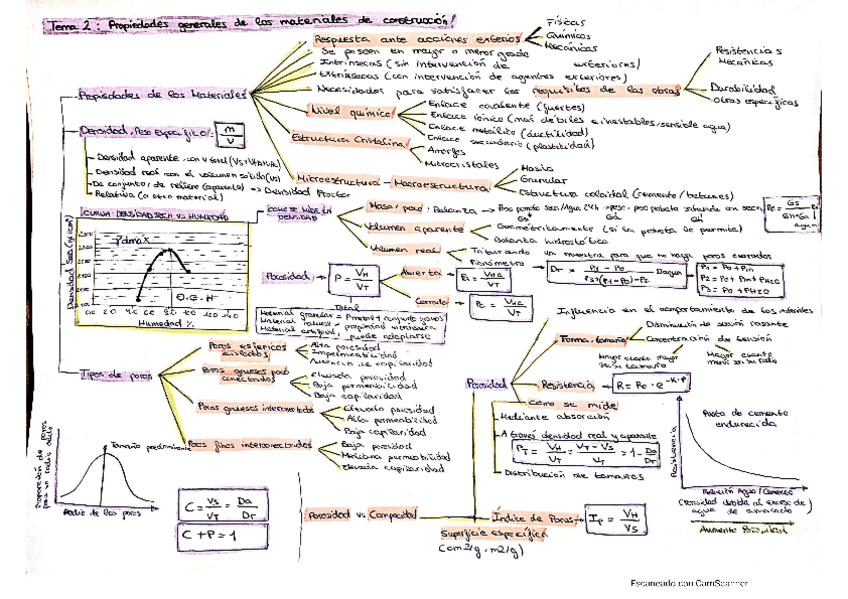 Tema 2: Propiedades generales de los materiales de construcción/
Propiedades de los Materiales
Respuesta ante acciones exterios
Físicas
Químicas
Mecánicas
Se poseen en mayor o menor grado
Intrínsecas (sin intervención de exteriores)
Extrínsecas (con intervención de agentes exteriores)
Necesidades para satisfacer los requisitos de las obras
Resistencias Mecánicas
Durabilidad
Obras específicas
Nivel químico
Enlace covalente (fuertes)
Enlace iónico (más débiles e inestables/sensible agua)
Enlace metálico (ductilidad)
Enlace secundario (plasticidad)
Estructura Cristalina
Amorfos
Microcristales
Microestructura - Macroestructura
Masiva
Granular
Estructura coloidal (cemento/betunes)
Densidad, Peso Específico: m/V
Densidad aparente con V total
Densidad real con el volumen sólido (Vs)
De conjunto, de relleno (aparente) => Densidad Proctor
Relativa (a otro material)
CURVA: DENSIDAD SECA VS HUMEDAD
Densidad Seca (g/cm³)
γdmax
Humedad %
COMO SE MIDE LA DENSIDAD
Masa/peso: Balanza
Volumen aparente
Geométricamente (si la probeta lo permite)
Balanza hidrostática
Volumen real
Triturando un muestra para que no haya poros cerrados
Picnómetro
Porosidad
P = VH/VT
Total
Abierta
Cerrada
Pc = VHC/VT
P1 = Po + Pm
P2 = Po + Pm + PH2O
P3 = Po + PH2O
Tipos de poros
Poros esféricos aislados
Alta porosidad
Impermeabilidad
Ausencia de capilaridad
Poros gruesos poco conectados
Elevada porosidad
Baja permeabilidad
Baja capilaridad
Poros gruesos interconectados
Elevada porosidad
Alta permeabilidad
Baja capilaridad
Poros finos interconectados
Baja porosidad
Mediana permeabilidad
Elevada capilaridad
Tamaño predominante
Radio de los poros
C = Vs/VT = Da/Dr
C + P = 1
Porosidad
Influencia en el comportamiento de los materiales
Forma, tamaño
Disminución de sección resistente
Concentración de tensión
Resistencia
R = Ro · e^-K·P
Cómo se mide
Mediante absorción
A través densidad real y aparente
PT = VH/VT = VT - VS/VT = 1 - Da/Dr
Distribución de tamaños
Pasta de cemento endurecida
Resistencia
Relación Agua/Cemento
(Porosidad debida al exceso de agua de amasado)
Aumento Porosidad
Porosidad vs Compacidad
Índice de Poros
Ip = VH/VS
Superficie específica
(cm2/g, m2/g)
Escaneado con CamScanner